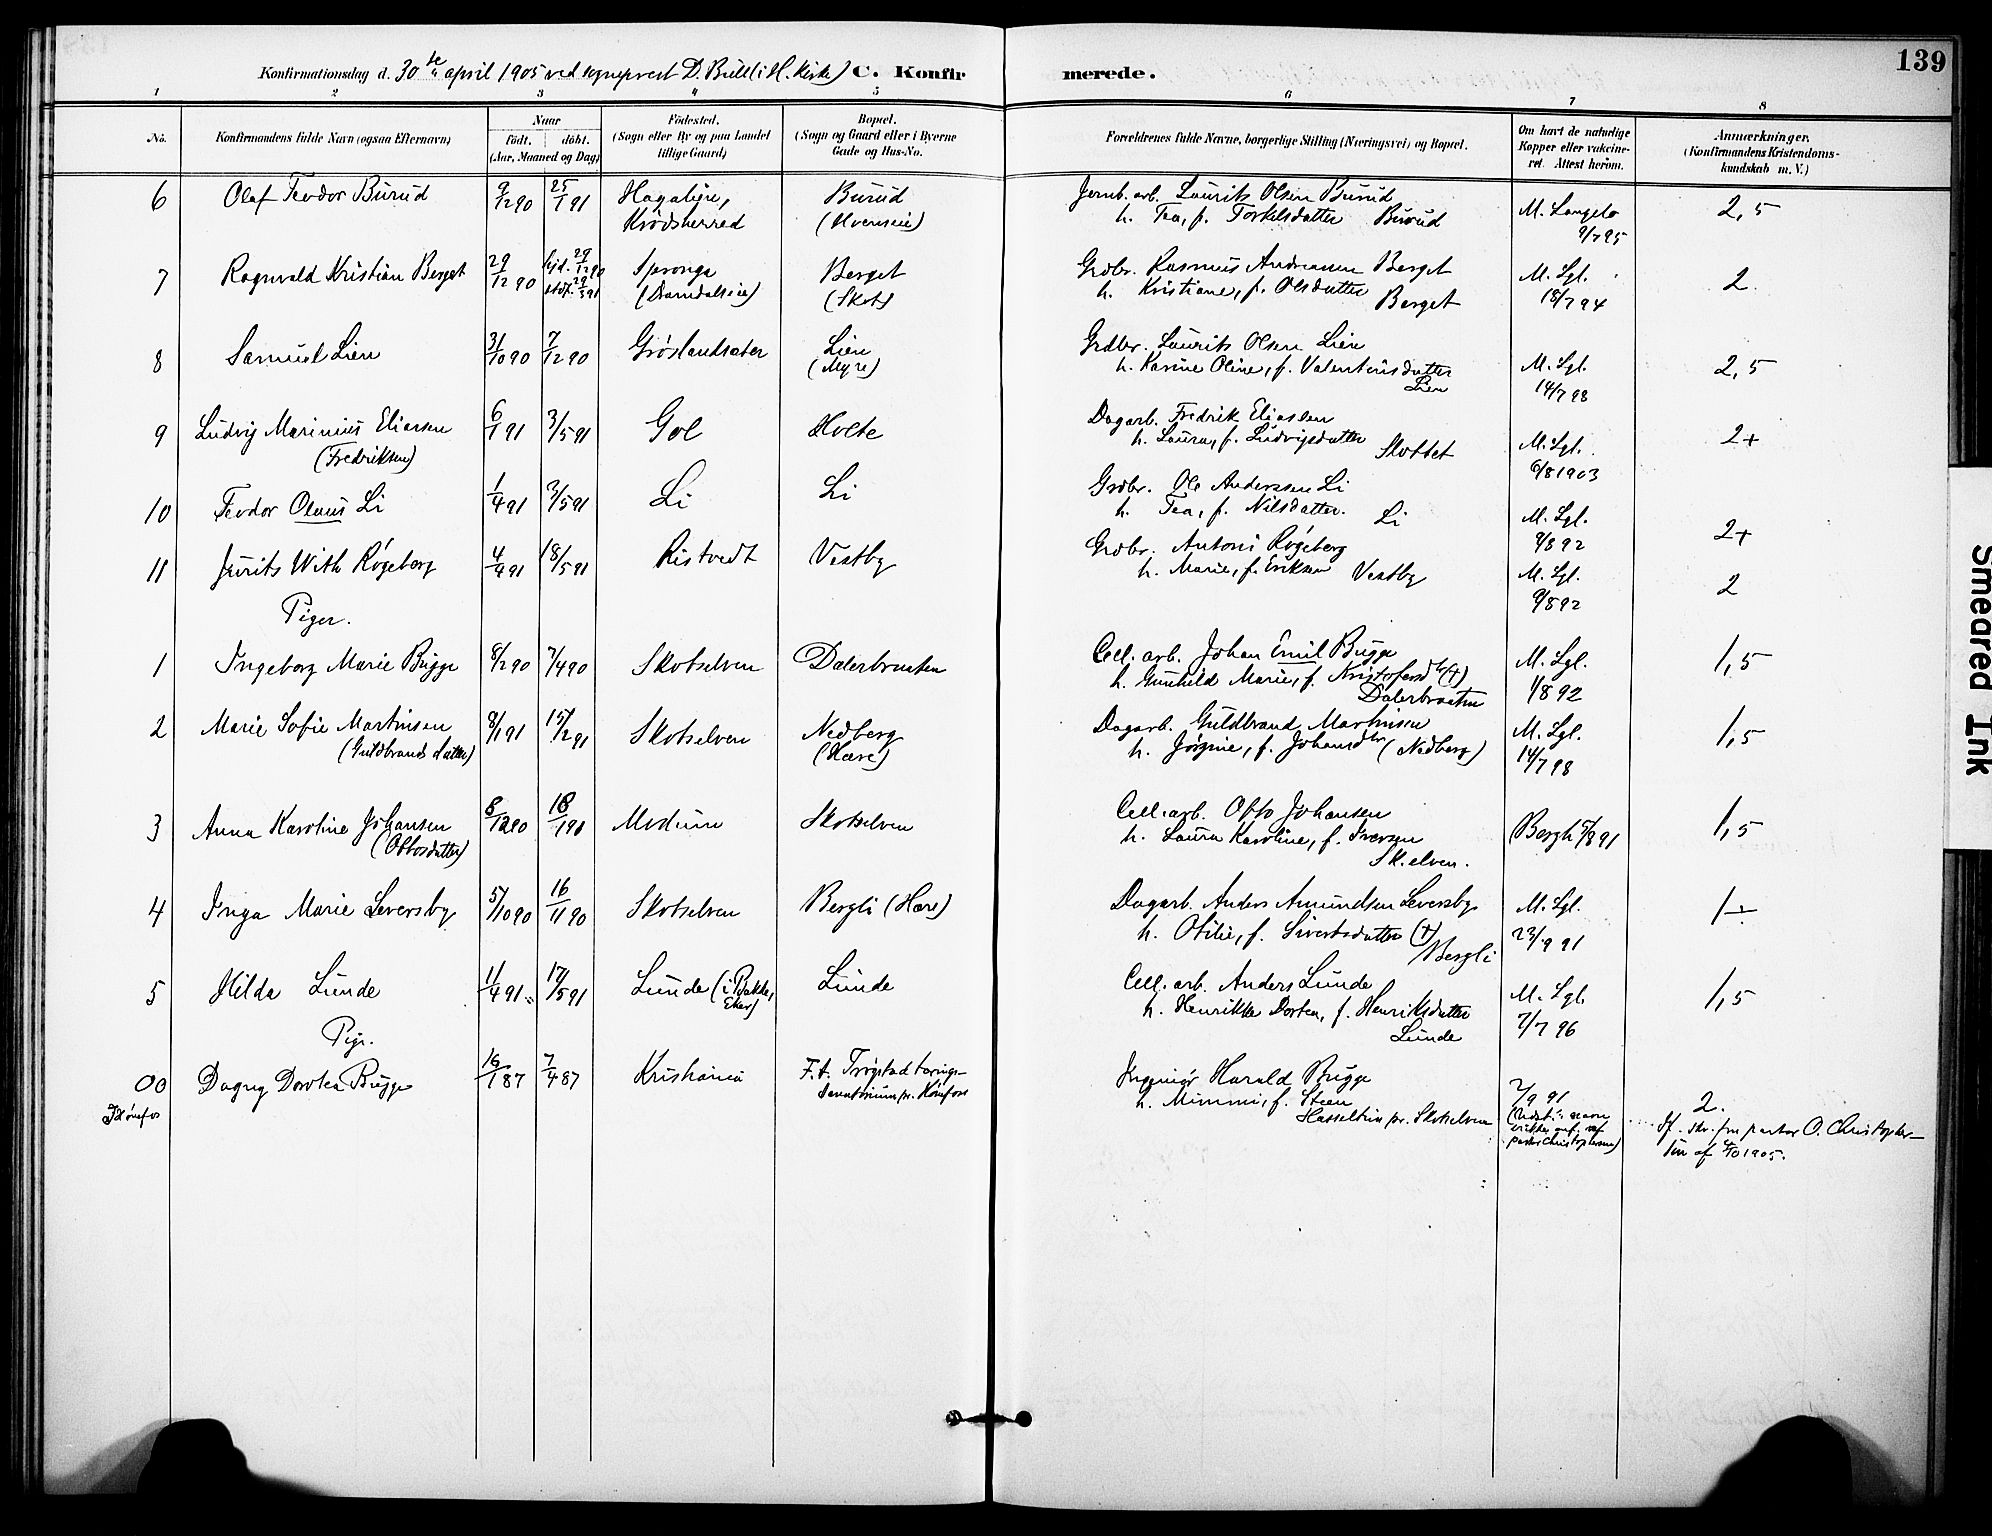 139
Konfirmationsdag d. 30te april 1905 ved sogneprest D. Bull (i H. kirke) C. Konfirmerede.
1 2 3 4 5 6 7 8
No. Konfirmandens fulde Navn (ogsaa Efternavn) Naar født. døbt. (Aar, Maaned og Dag) Fødested. (Sogn eller By og paa Landet tillige Gaard) Bopæl. (Sogn og Gaard eller i Byerne Gade og Hus-No. Forældrenes fulde Navne, borgerlige Stilling (Næringsvei) og Bopæl. Om havt de naturlige Kopper eller vakcineret. Attest herom. Anmærkninger. (Konfirmandens Kristendomskundskab m. V.)
6 Olaf Teodor Burud 9/12 90 25/1 91 Burud Jernb. arb. Laurits Olsen Burud M. Langebo 2,5
Krødsherred (Hvernsie) h. Tea, f. Torkelsdatter Burud 9/7 95
7 Ragnvald Kristian Berget 29/12 90 hjd. 29/12 90 Spronga Berget Grdbr. Rasmus Andreasen Berget M. Lgl. 2
stdf. 29/3 91 (Skots) h. Kristiane, f. Olsdatter Berget 18/7 94
8 Samuel Lien 31/10 90 7/12 90 Grøslandsæter Lien Grdbr. Laurits Olsen Lien M. Lgl. 2,5
(Myre) h. Karine Oline, f. Valentinsdatter Lien 14/7 98
9 Ludvig Marinius Eliasen 6/1 91 3/5 91 Gol Holte Dagarb. Fredrik Eliassen 2+
(Fredriksen) h. Laura, f. Ludvigsdatter Slottet M. Lgl. 6/8 1903
10 Teodor Olaus Li 1/4 91 3/5 91 Li Li Grdbr. Ole Anderssen Li
h. Tea, f. Nilsdatter. Li M. Lgl. 9/8 92 2+
11 Jurits With Røgeberg 4/4 91 18/5 91 Ristvedt Vestby Grdbr. Antoni Røgeberg
h. Marie, f. Eriksen Vestby M. Lgl. 9/8 92 2
Piger.
1 Ingeborg Marie Bugge 8/2 90 7/4 90 Skotselven Dalerbraaten Cell. arb. Johan Emil Bugge M. Lgl. 1,5
h. Gunhild Marie, f. Kristofersdtr (†) 1/8 92
Dalerbraaten
2 Marie Sofie Martinsen 8/1 91 15/2 91 Skotselven Nedberg Dagarb. Guldbrand Martinsen M. Lgl. 1,5
(Guldbrandsdatter) (Hære) h. Jørgine, f. Johansdtr (Nedberg) 14/7 98
3 Anna Karoline Johansen 8/12 90 18/1 91 Modum Skotselven Cell. arb. Otto Johansen 1,5
(Ottosdatter) h. Laura Karoline, f. Iversen Bergh 5/9 91
Sk.elven.
4 Inga Marie Leversby 5/10 90 16/11 90 Skotselven Bergli (Hære) Dagarb. Anders Amundsen Leversby M. Lgl. 1÷
h. Otilie, f. Sivertsdatter (†) 23/9 91
Bergli
5 Hilda Lunde 11/4 91 17/5 91 Lunde (i Bakke, Eker) Lunde Cell. arb. Anders Lunde M. Lgl. 1,5
h. Henrikke Dortea, f. Henriksdatter 7/7 96
Lunde
Pige.
00 Dagny Dorotea Bugge 16/1 87 7/4 87 Kristiania F. t. Trøgstad tærings- Ingeniør Harald Bugge 7/9 91 2.
Konfos sanatorium pr. Konfoss h. Mimmi, f. Steen
Hasseltun pr. Skotselven ikke anf. af pastor Christophersen) Sf. skr. fra pastor O. Christophersen af 4/10 1905.
Smeared Ink